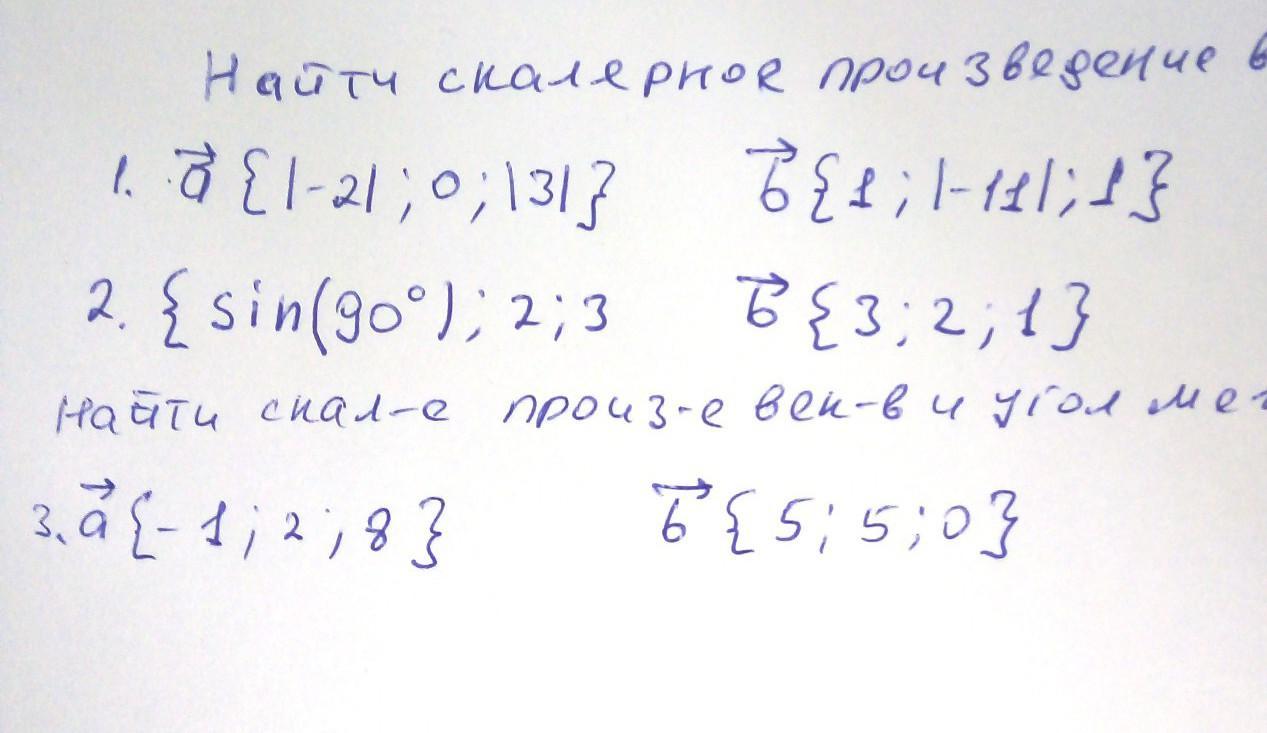 Найти скалярное произведение в
1. a⃗ {|-2|; 0; |3|} b⃗ {1; |-11|; 1}
2. {sin(90°); 2; 3 b⃗ {3; 2; 1}
Найти скал-е произ-е век-в и угол ме
3. a⃗ {-1; 2; 8} b⃗ {5; 5; 0}